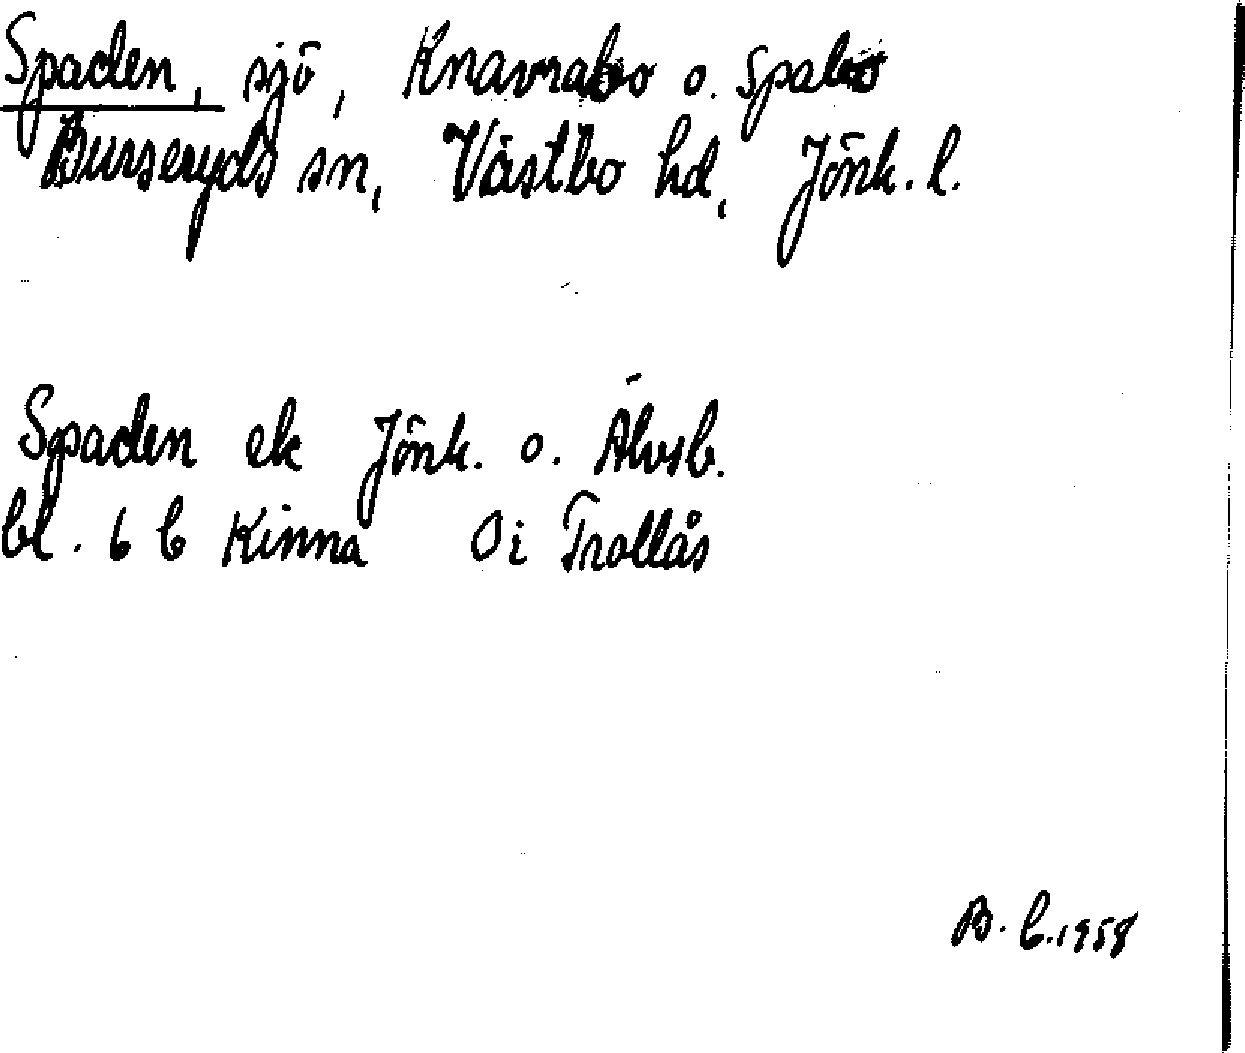 Spaden, sjö, Knavrabo o. Spabo
Burseryds sn, Västbo hd, Jönk. l.
Spaden ek Jönk. o. Älvsb.
bl. 6 b Kinna O i Trollås
B. b. 1958